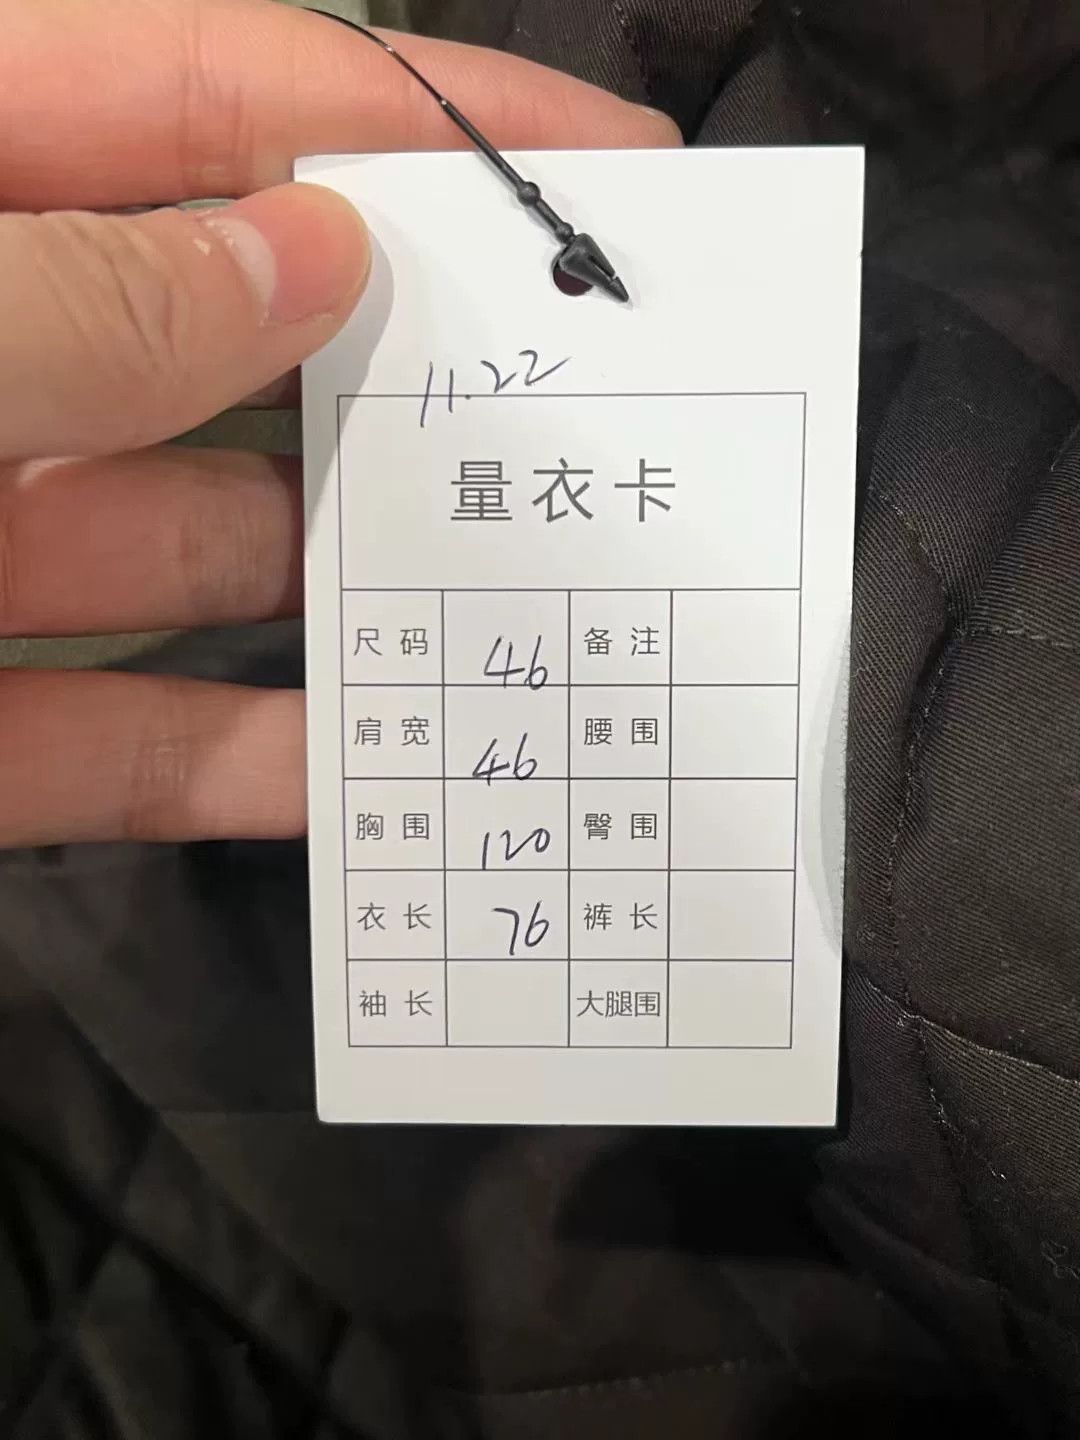 11.22
量衣卡
尺码 46 备注
肩宽 46 腰围
胸围 120 臀围
衣长 76 裤长
袖长 大腿围